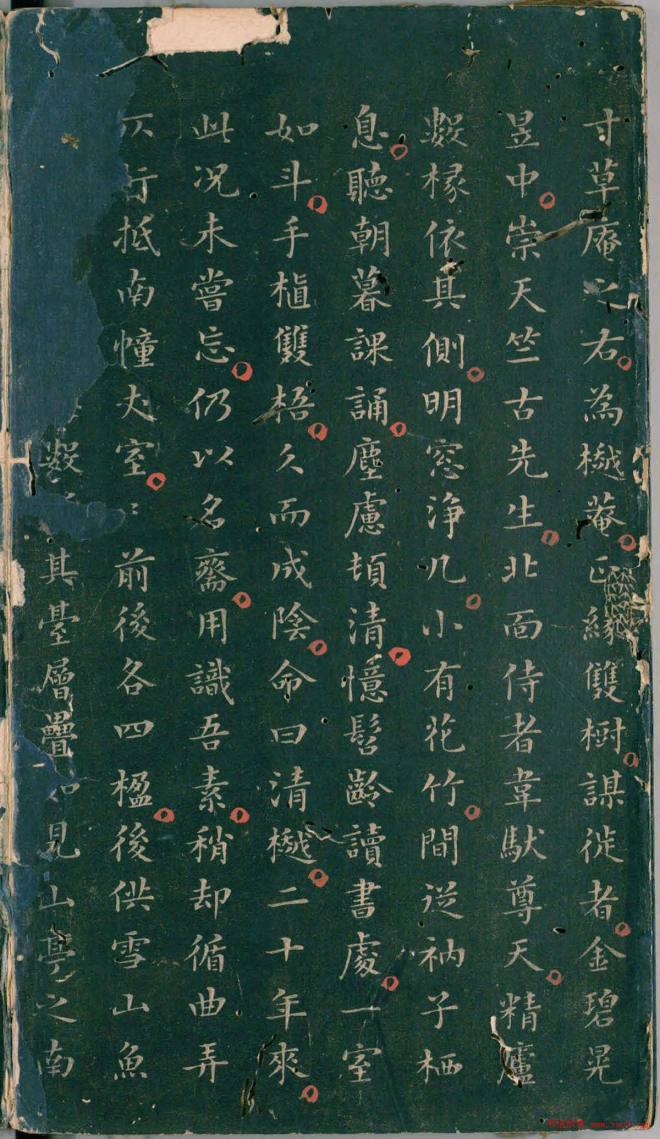 寸草庵之右為樾菴正緣雙樹謀徙者金碧晃
昱中崇天竺古先生北面侍者韋馱尊天精廬
數椽依其側明窓淨几小有花竹間逆衲子栖
息聽朝暮課誦塵慮頓清憶髫齡讀書處一室
如斗手植雙梧久而成陰命曰清樾二十年來
此況未嘗忘仍以名齋用識吾素稍却循曲弄
行抵南幢丈室〻前後各四楹後供雪山魚
數其臺層疊如見山亭之南